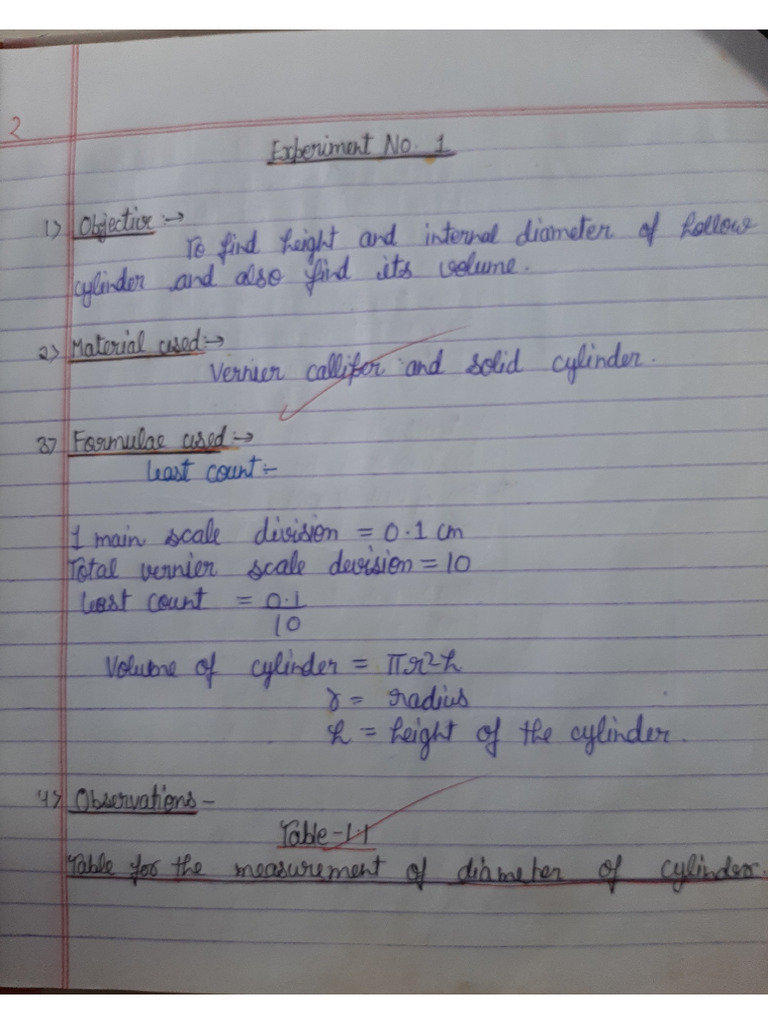 2
Experiment No. 1
1) Objective :→
To find height and internal diameter of hollow
cylinder and also find its volume.
2) Material used:→
Vernier callifer and solid cylinder.
3) Formulae used :→
least count :-
1 main scale division = 0.1 cm
Total vernier scale devision = 10
least count = 0.1
10
Volume of cylinder = πr2h
r = radius
h = height of the cylinder.
4) Observations -
Table-1.1
Table for the measurement of diameter of cylinder.